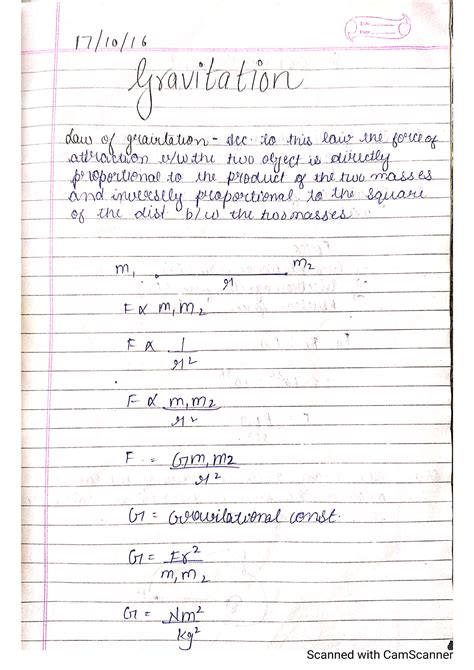 17/10/16
Gravitation
Law of graitation - Acc. to this law the force of
attraction b/w the two object is directly
proportional to the product of the two masses
and inversely proportional to the square
of the dist b/w the two masses
m₁ r m₂
F ∝ m₁m₂
F ∝ 1/r²
F ∝ m₁m₂/r²
F = Gm₁m₂/r²
G = Gravitational const.
G = Fr²/m₁m₂
G = Nm²/kg²
Scanned with CamScanner